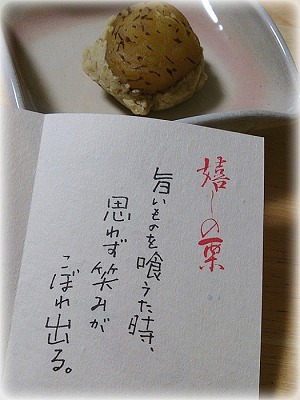 嬉しの栗
旨いものを喰うた時、
思わず笑みが
こぼれ出る。